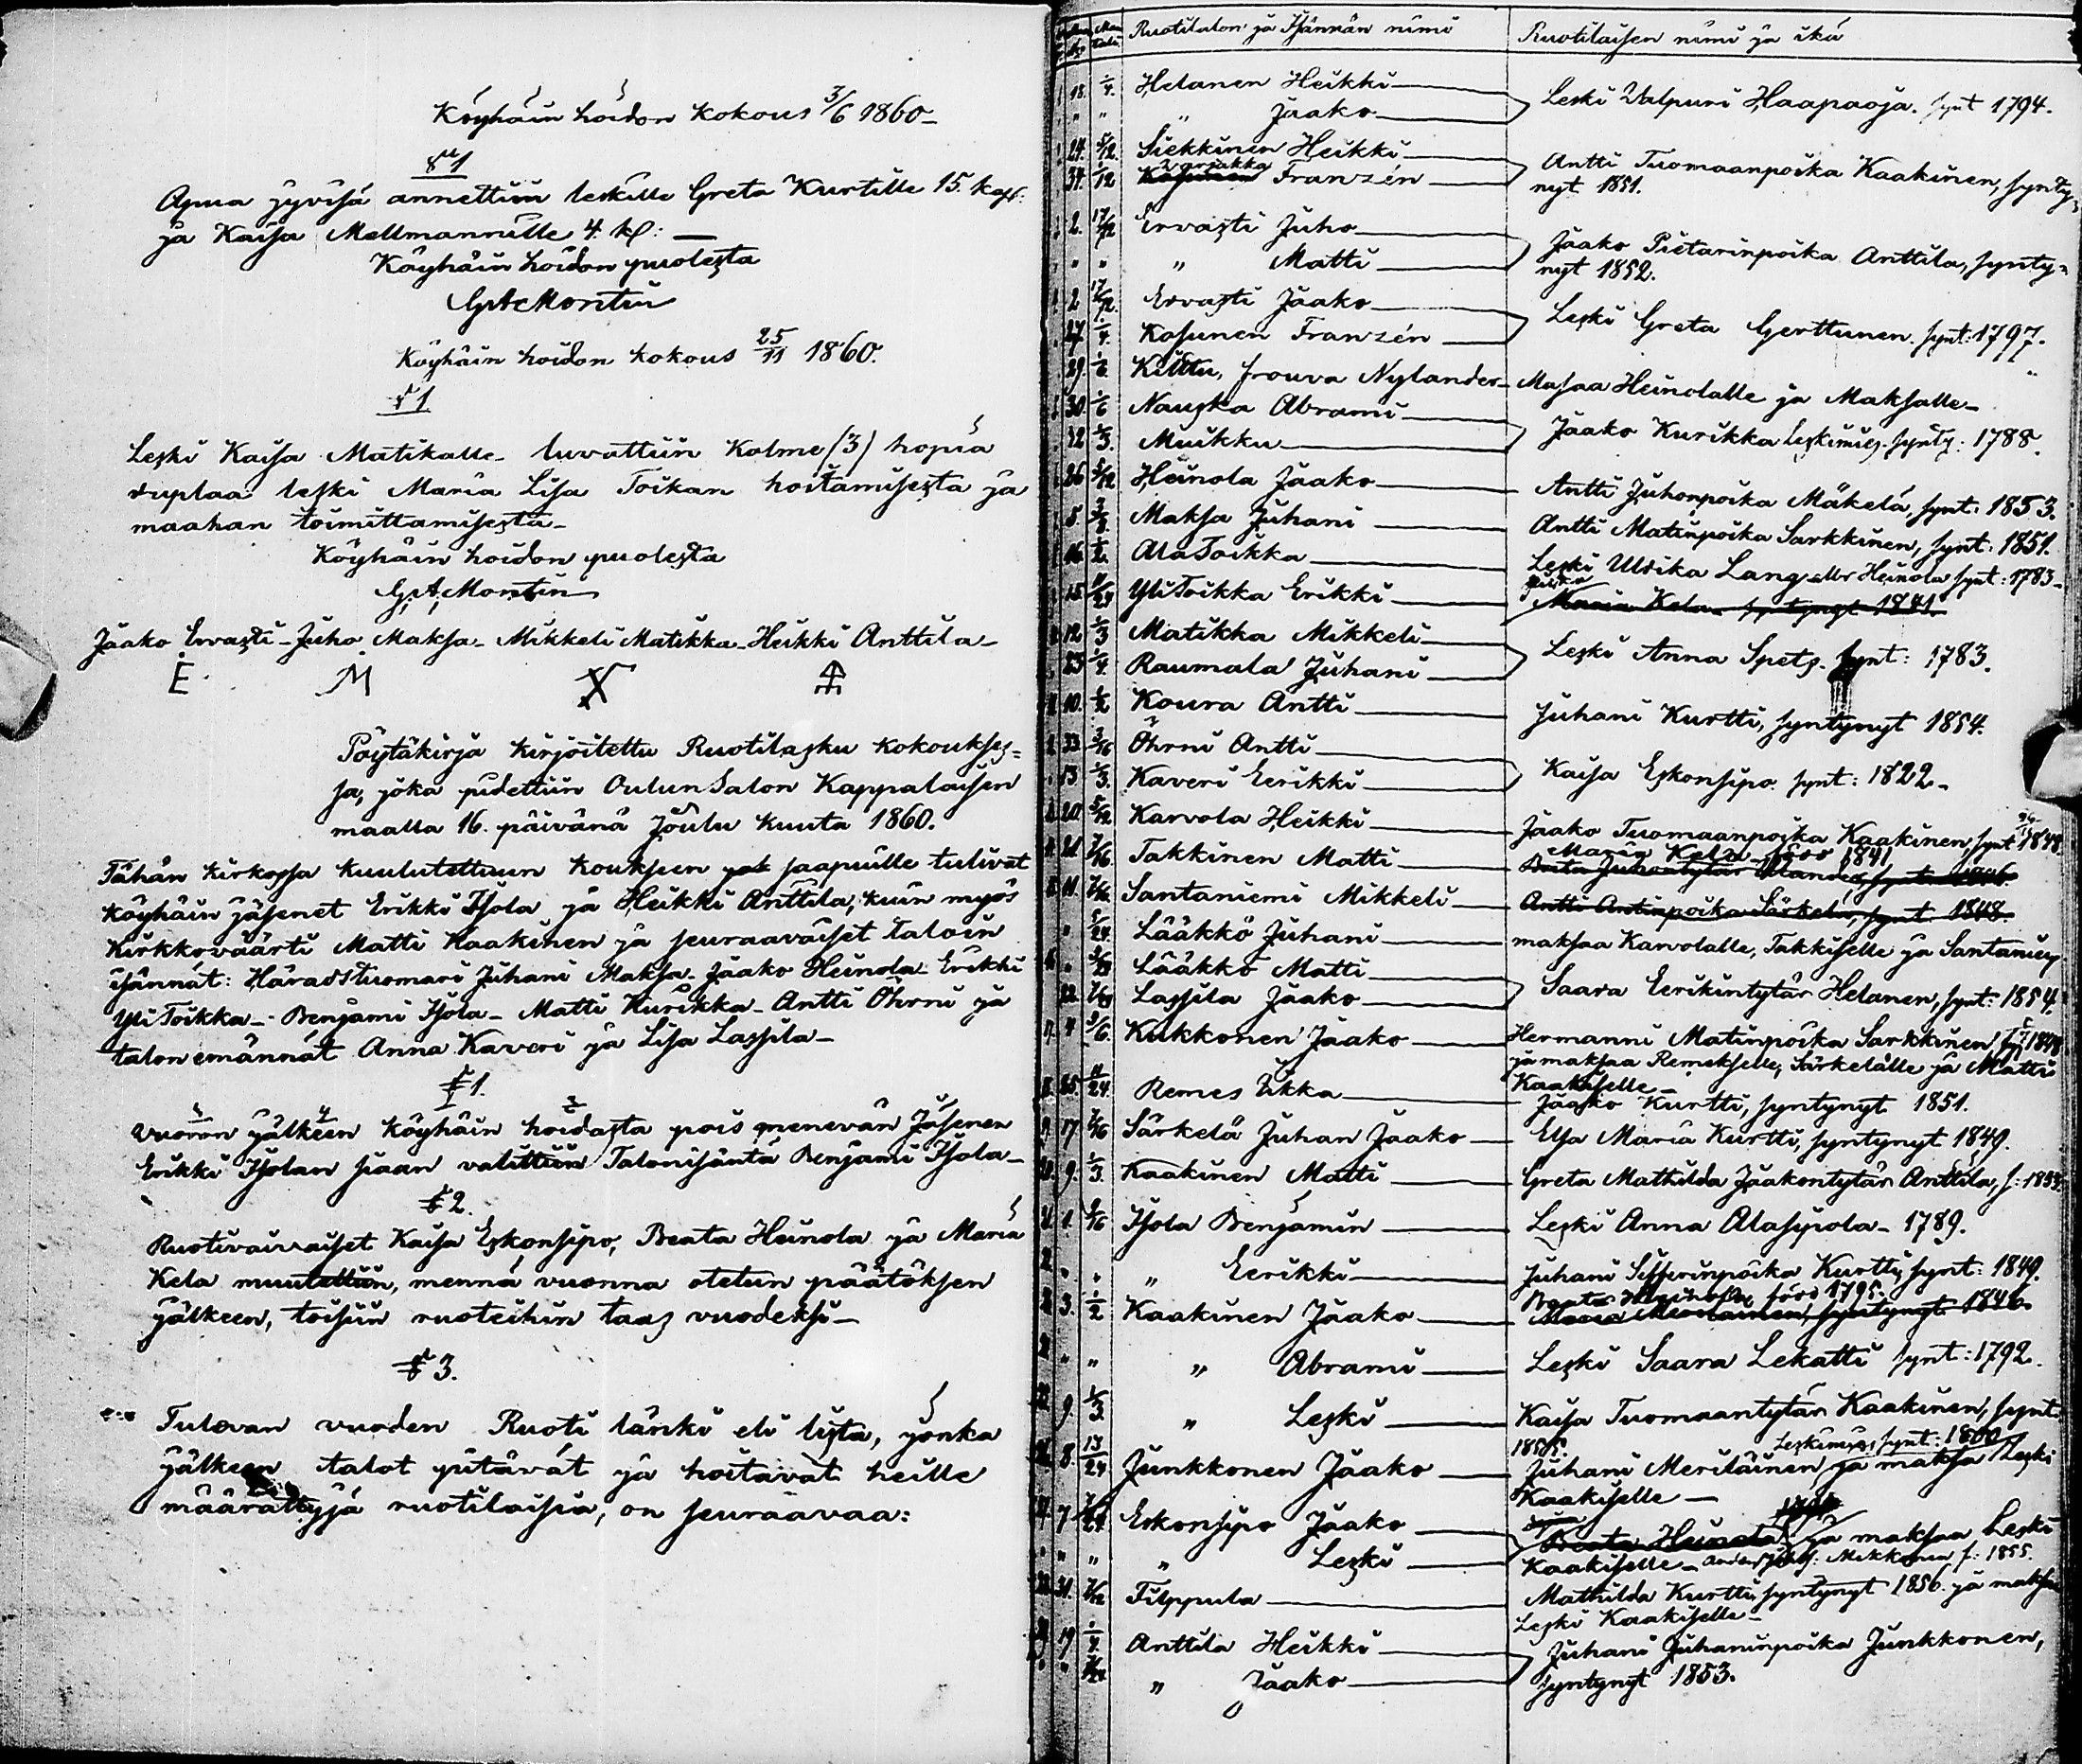 Köyhäin hoidon kokous 3/6 1860
§ 1
Apua jyvisä annettiin leskille Greta Kurtille 15. kap:
ja Kaisa Mellmannille 4. kp:
Köyhäin hoidon puolesta
G A Montin
Köyhäin hoidon kokous 25/11 1860.
§ 1
Leski Kaisa Matikalle luvattiin Kolme (3) hopia
ruplaa leski Maria Lisa Toikan hoitamisesta ja
maahan toimittamisesta
Köyhäin hoidon puolesta
G. A. Montin
Jaako Ervasti - Juho Maksa - Mikkeli Matikka - Heikki Anttila
E M
Pöytäkirja kirjoitettu Ruotilasku kokoukses=
sa, joka pidettiin OulunSalon Kappalaisen
maalla 16. päivänä Joulu kuuta 1860.
Tähän kirkossa kuulutettuun koukseen saapuille tulivat
köyhäin jäsenet Erikki Isola ja Heikki Anttila, kuin myös
Kirkkoväärti Matti Kaakinen ja seuraavaiset taloin
isännät: Häradstuomari Juhani Maksa - Jaako Heinola - Erikki
YliToikka - Benjami Isola - Matti Kurikka - Antti Öhrni ja
talon emännät Anna Kaveri ja Lisa Lassila
§ 1.
Vuoron jälkeen köyhäin hoidasta pois menevän Jäsenen
Erikki Isolan siaan valittiin Talonisäntä Benjami Isola
§ 2.
Ruotivaivaiset Kaisa Eskonsipo, Beata Heinola ja Maria
Kela muutettiin, mennä vuonna otetun päätöksen
jälkeen, toisiin ruoteihin taas vuodeksi
§ 3.
Tulevan vuoden Ruoti länki eli lista, jonka
jälkeen talot pitävät ja hoitavat heille
määrättyjä ruotilaisia, on seuraavaa:
Ruotitalon ja Isännän nimi Ruotilaisen nimi ja ikä
18. 1/4. Helanen Heikki Leski Walpuri Haapaoja. synt 1794.
" " " Jaako
24. 5/12. Siekkinen Heikki Antti Tuomaanpoika Kaakinen, synty=
34. 1/12 Franzén nyt 1851.
2. 17/72 Ervasti Juho Jaako Pietarinpoika Anttila, synty=
" " " Matti nyt 1852.
2 17/72. Ervasti Jaako Leski Greta Gerttunen. synt: 1797.
27. 1/4. Kosunen Franzén
29. 1/6. Kiltu, frouva Nylander Maksaa Heinolalle ja Maksalle
30. 1/6 Nauska Abrami Jaako Kurikka Leskimies. synty: 1788.
32 1/3. Muikku
26 5/12 Heinola Jaako Antti Juhonpoika Mäkelä, synt: 1853.
5. Maksa Juhani Antti Matinpoika Sarkkinen, synt: 1851.
16. 1/2. AlaToikka Leski Ulrika Lang eller Heinola synt: 1783
15. 11/24 YliToikka Erikki Maria Kela syntynyt 1841
12 1/3 Matikka Mikkeli Leski Anna Spets. synt: 1783.
23 1/4. Raumala Juhani
10. 1/2 Koura Antti Juhani Kurtti, syntynyt 1854.
33. 3/16 Öhrni Antti Kaisa Eskonsipo. synt: 1822
13 1/3. Kaveri Eerikki
20. 5/12 Karvola Heikki Jaako Tuomaanpoika Kaakinen, synt 1848.
21. 7/16 Takkinen Matti Maria Kela född 1841
11. 7/16 Santaniemi Mikkeli Antti Antinpoika Särkelä, synt. 1848.
" 5/24. Lääkkö Juhani maksaa Karvolalle, Takkiselle ja Santaniem
Lääkkö Matti Saara Eerikintytär Helanen, synt: 1854.
22. Lassila Jaako
4 Kukkonen Jaako Hermanni Matinpoika Sarkkinen 1848
ja maksaa Remekselle, Särkelälle ja Matti
Kaakiselle
25. 11/24. Remes Ukka Jaako Kurtti, syntynyt 1851.
17 7/16 Särkelä Juhan Jaako Elsa Maria Kurtti, syntynyt 1849.
9. 1/3. Kaakinen Matti Greta Mathilda Jaakontytär Anttila, s: 1853.
1. Isola Benjamin Leski Anna Alasipola - 1789.
" " " Eerikki Juhani Sifferinpoika Kurtti, synt: 1849.
3. 1/2 Kaakinen Jaako Beata Heinola född 1795.
Maria Meriläinen, syntynyt 1846.
" " " Abrami Leski Saara Lekatti synt: 1792.
9. 1/3. " Leski Kaisa Tuomaantytär Kaakinen, synt.
1855. Leskimies, synt: 1800
8. 13/24 Junkkonen Jaako Juhani Meriläinen ja maksa Leski
Kaakiselle
7 Eskonsipo Jaako Beata Heinola ja maksaa Leski
" " " Leski Kaakiselle - Mikkonen f: 1855.
31. Filppula Mathilda Kurtti, syntynyt 1856. ja maksaa
Leski Kaakiselle
19 1/4. Anttila Heikki Juhani Juhaninpoika Junkkonen,
" " Jaako syntynyt 1853.